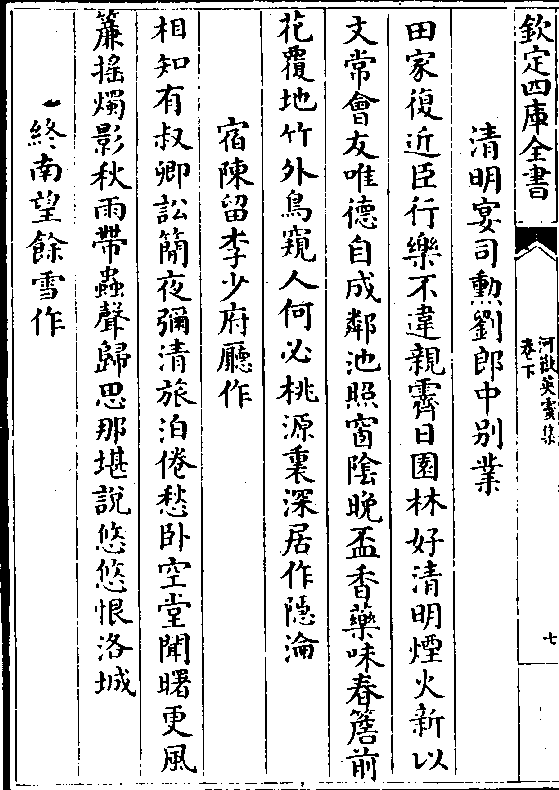 欽定四庫全書
河嶽英靈集
卷下
七
清明宴司勲劉郎中别業
田家復近臣行樂不違親霽日園林好清明煙火新以
文常會友唯德自成鄰池照窗隂晩盃香藥味春簷前
花覆地竹外鳥窺人何必桃源裏深居作隱淪
宿陳留李少府廳作
相知有叔卿訟簡夜彌清旅泊倦愁卧空堂聞曙更風
簾摇燭影秋雨帶蟲聲歸思那堪說悠悠恨洛城
終南望餘雪作